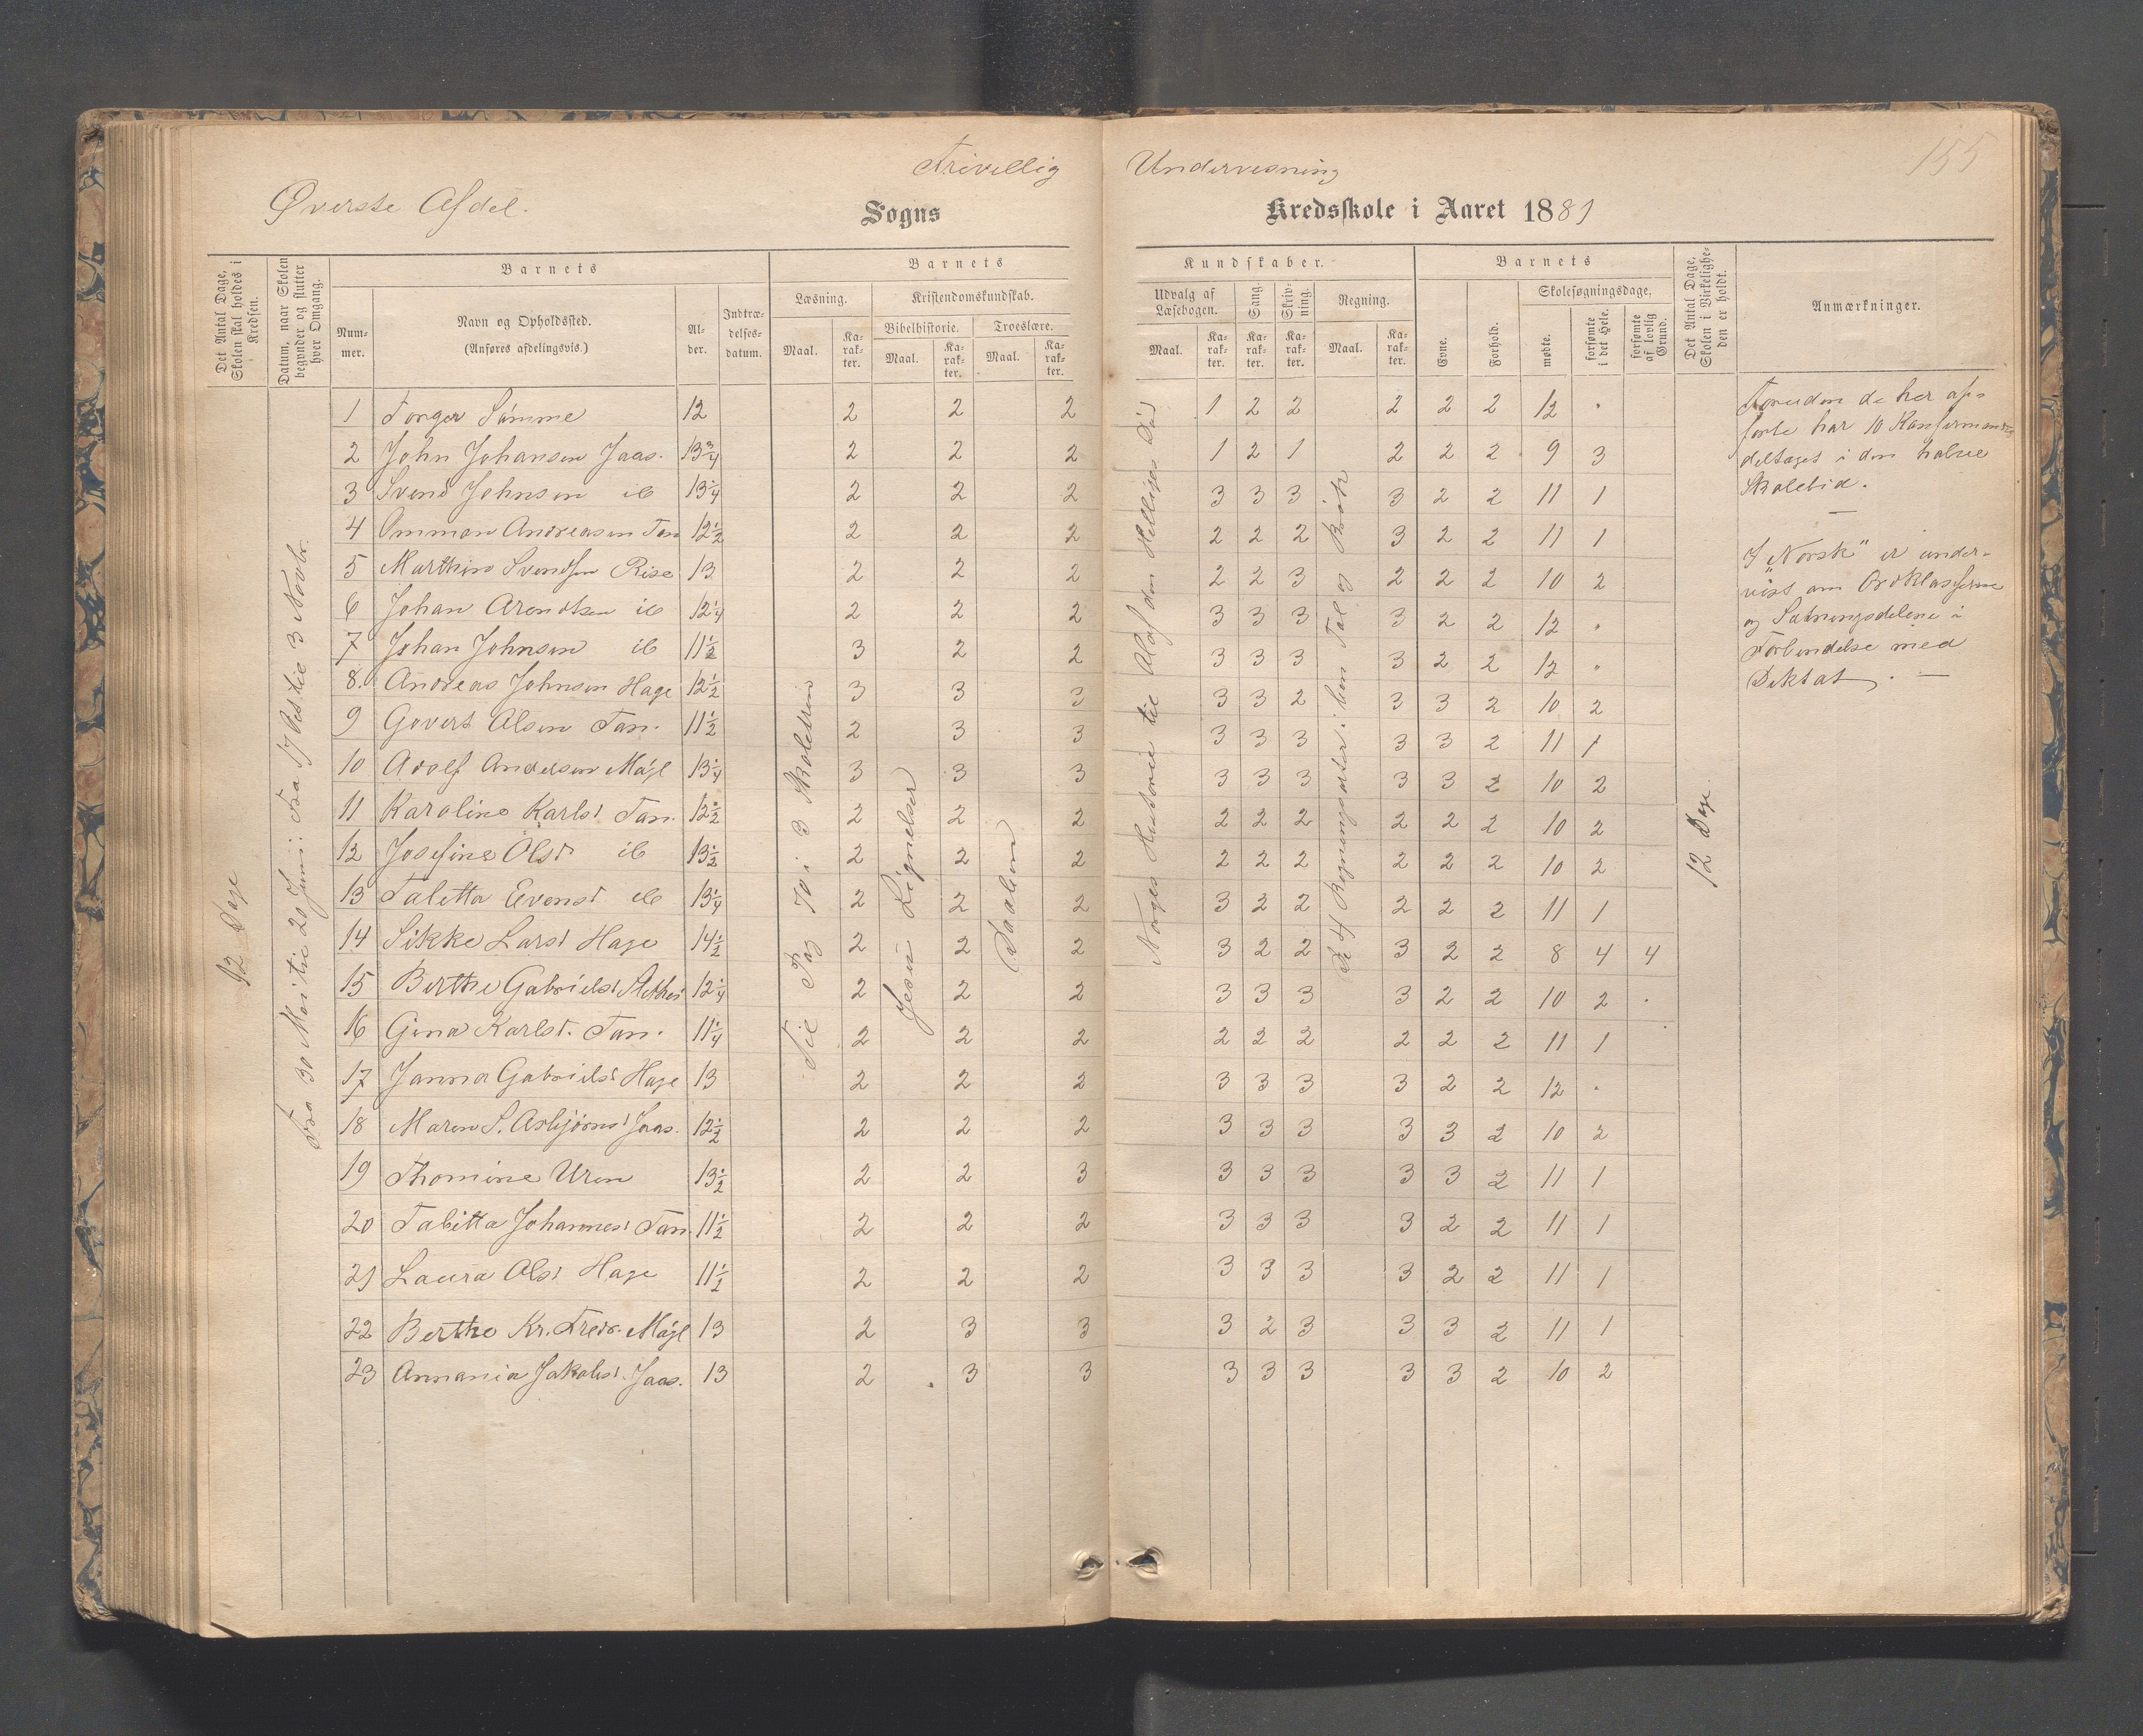 Frivillig Undervisning
155
Øverste Afdel.
Sogns Kredsskole i Aaret 1881
Det Antal Dage, Skolen skal holdes i Kredsen.
Datum, naar Skolen begynder og slutter hver Omgang.
Barnets
Nummer.
Navn og Opholdssted.
(Anføres afdelingsvis.)
Alder.
Indtrædelsesdatum.
Barnets
Læsning.
Maal.
Karakter.
Kristendomskundskab.
Bibelhistorie.
Maal.
Karakter.
Troeslære.
Maal.
Karakter.
Kundskaber.
Udvalg af Læsebogen.
Maal.
Karakter.
Sang.
Karakter.
Skrivning.
Karakter.
Regning.
Maal.
Karakter.
Barnets
Evne.
Forhold.
Skolesøgningsdage,
mødte.
forsømte i det Hele.
forsømte af lovlig Grund.
Det Antal Dage, Skolen i Virkeligheden er holdt.
Anmærkninger.
12 Dage
Fra 30 Mai til 20 Juni: Fra 17 Okt til 3 Novbr.
Til Pag 70 i 3 Skoletrin
Jesu Lignelser
Daaben
Norges Historie til Olaf den Helliges Død
De 4 Regningsarter i hen Tal og Brøk
12 Dage
1 Torger Sømme 12 2 2 2 1 2 2 2 2 2 12 "
2 John Johansen Jaas. 13 3/4 2 2 2 1 2 1 2 2 2 9 3
3 Svend Johnsen ib 13 1/4 2 2 2 3 3 3 3 2 2 11 1
4 Ommon Andreasen Tan 12 1/2 2 2 2 2 2 2 3 2 2 11 1
5 Marthin Svendsen Rise 13 2 2 2 2 2 3 2 2 2 10 2
6 Johan Arendtsen ib 12 1/4 2 2 2 3 3 3 3 2 2 12 "
7 Johan Johnsen ib 11 1/2 3 2 2 3 3 3 3 2 2 12 "
8. Andreas Johnsen Hage 12 1/2 3 3 3 3 3 2 3 3 2 10 2
9 Govert Olsen Tan. 11 1/2 2 3 3 3 3 3 3 3 2 11 1
10 Adolf Andersen Møgl 13 1/4 3 3 3 3 3 3 3 3 2 10 2
11 Karoline Karlsd Tan. 12 1/2 2 2 2 2 2 2 2 2 2 10 2
12 Josefine Olsd ib 13 1/2 2 2 2 2 2 2 2 2 2 10 2
13 Talitta Evensd ib 13 1/4 2 2 2 3 2 2 2 2 2 11 1
14 Sikke Larsd Hage 14 1/2 2 2 2 3 2 2 3 2 2 8 4 4
15 Berthe Gabrielsd 12 1/4 2 2 2 3 3 3 3 2 2 10 2 .
16 Gina Karlsd. Tan. 11 1/4 2 2 2 2 2 2 2 2 2 11 1
17 Janna Gabrielsd Hage 13 2 2 2 3 3 3 3 2 2 12 "
18 Maren S. Asbjørnsd Jaas. 12 1/2 2 2 2 3 3 3 3 3 2 10 2
19 Thomine Uren 13 1/2 2 2 3 3 3 3 3 3 2 11 1
20 Tabitta Johannesd Tan. 11 1/2 2 2 2 3 3 3 3 2 2 11 1
21 Laura Olsd Hage 11 1/2 2 2 2 3 3 3 3 2 2 11 1
22 Berthe Kr. Fredr. Møgl 13 2 3 3 3 2 3 3 3 2 11 1
23 Annania Jakobsd. Jaas. 13 2 3 3 3 3 3 3 3 2 10 2
Foruden de her op-
førte har 10 Konfirmander
deltaget i den halve
Skoletid.
I "Norsk" er under-
vist om Ordklasserne
og Sætningsdelene i
Forbindelse med
Diktat.